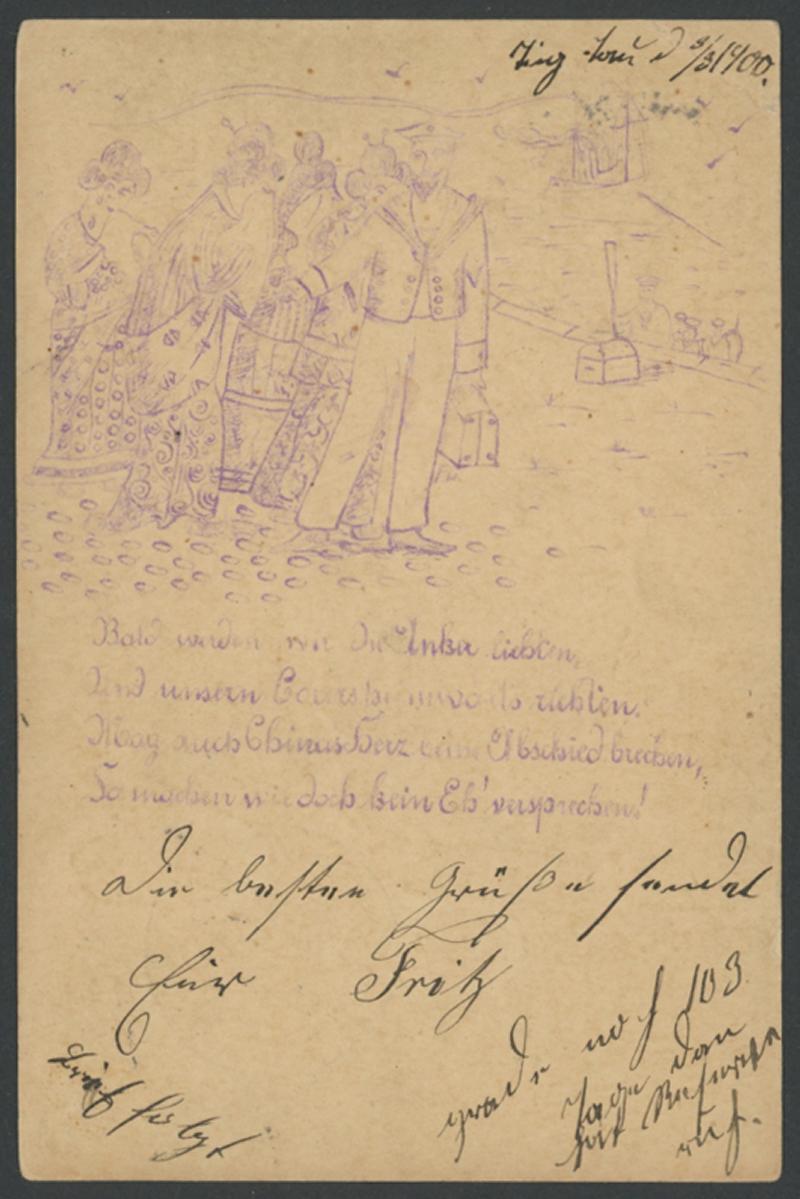 Tsingtau d 3/3 1900.
Bald werden wir die Anker lichten,
Und unsern Cours heimwärts richten.
Mag auch Chinas Herz beim Abschied brechen,
So machen wir doch kein Eh' versprechen!
Die besten Grüße sendet
Euer Fritz
grade noch 103
Tage dan
hat Reserve
ruh.
Brief folgt